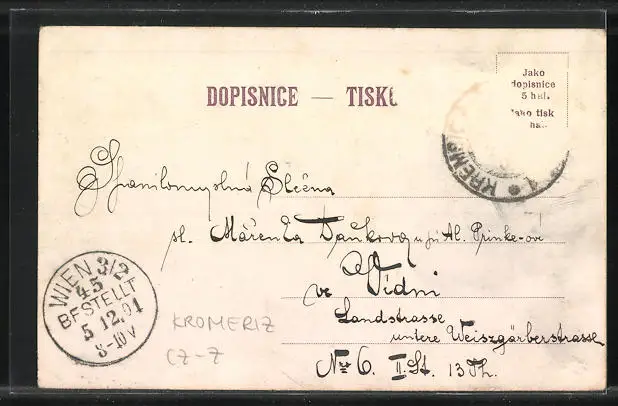 DOPISNICE — TISK
Jako
dopisnice
5 hal.
Jako tisk
KREMS
Spanilomyslná Slečna
sl. Mářenka Daňkova u pí Al. Prinke-ové
ve Vídni
Landstrasse
untere Weiszgärberstrasse
No 6. II. St. 13 Th.
WIEN 3/2
45
BESTELLT
5.12.01
8-10V
KROMERIZ
CZ-Z